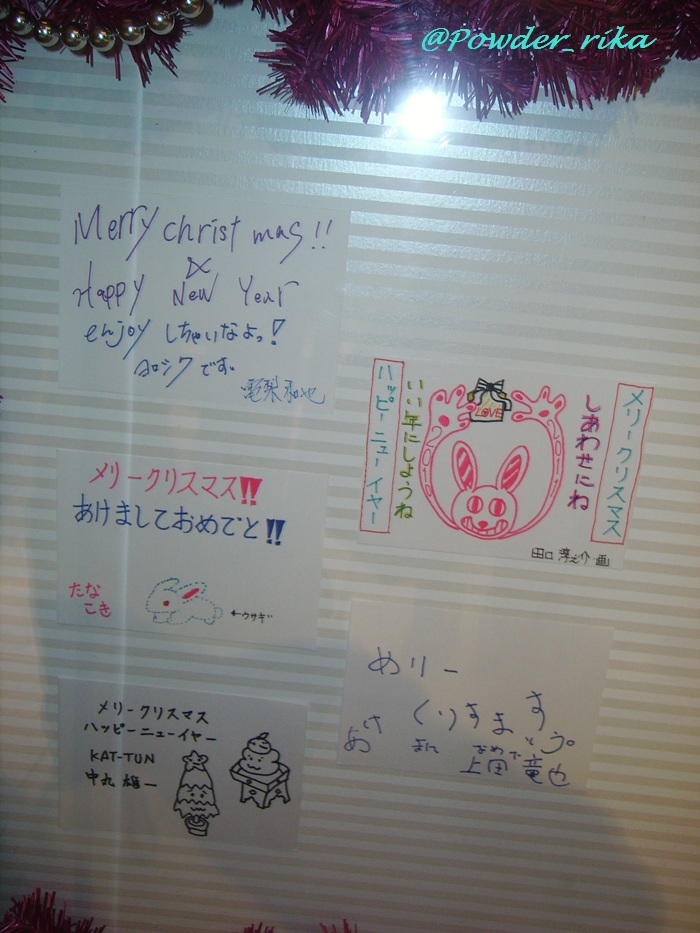 @Powder_rika
Merry christ mas!!
&
Happy New Year
enjoy しちゃいなよっ!
ヨロシクです。
亀梨和也
メリークリスマス
しあわせにね
LOVE
2011
2011
いい年にしようね
ハッピーニューイヤー
田口淳之介 画
メリークリスマス!!
あけましておめでと!!
たな
こき
←ウサギ
めりー
くりすます
あけ
上田竜也
メリークリスマス
ハッピーニューイヤー
KAT-TUN
中丸雄一